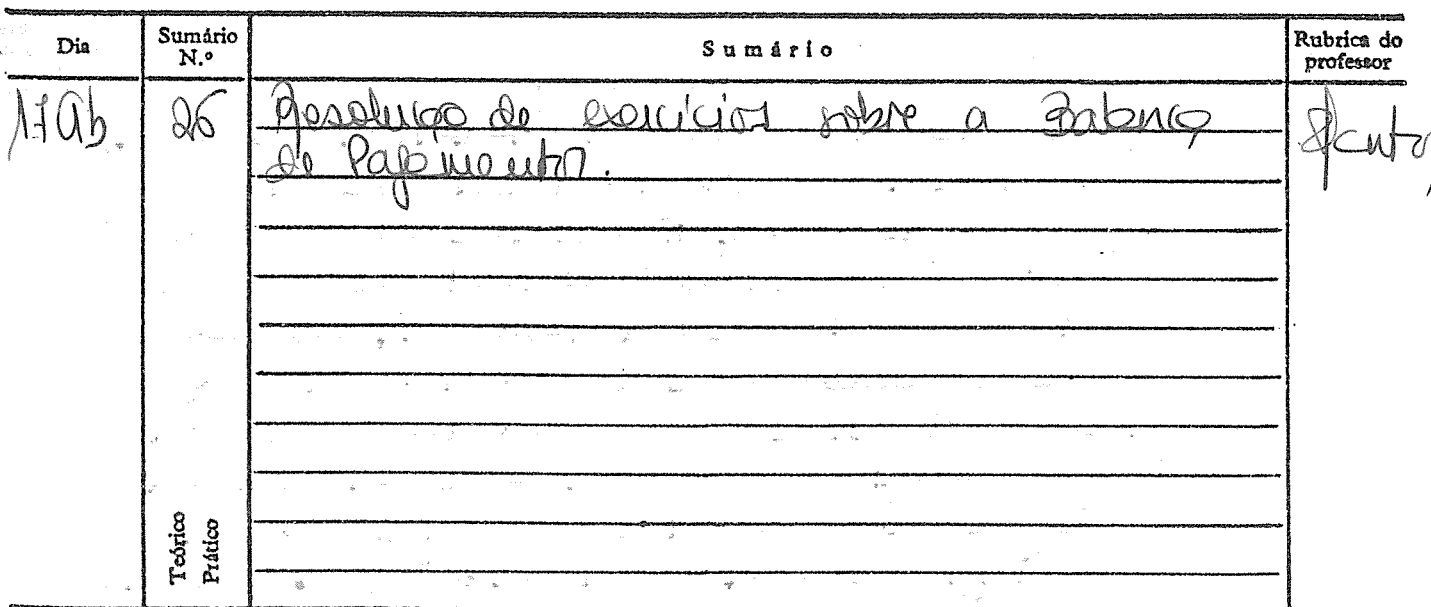 Dia Sumário N.º Sumário Rubrica do professor
17 Ab. 26 Resolução de exercícios sobre a Balança
de Pagamentos.
Teórico
Prático